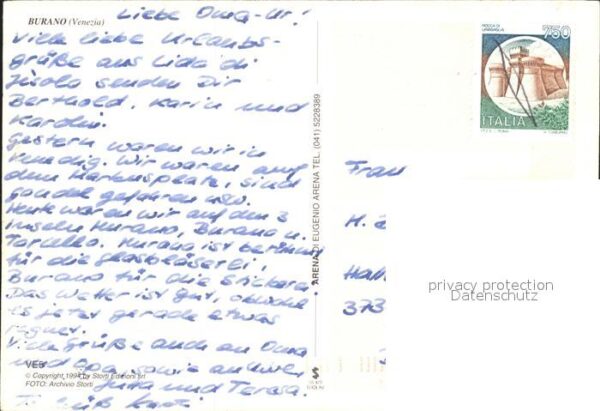 BURANO (Venezia)
Liebe Oma-Ur!
Viele liebe Urlaubs-
grüße aus Lido di
Jesolo senden Dir
Berthold, Karin und
Karolin.
Gestern waren wir in
Venedig. Wir waren auf
dem Markusplatz, sind
Gondel gefahren usw.
Heute waren wir auf den 3
Inseln Murano, Burano u.
Torcello. Murano ist berühmt
für die Glasbläserei,
Burano für die Stickerei.
Das Wetter ist gut, obwohl
es jetzt gerade etwas
regnet.
Viele Grüße auch an Oma
und Opa, sowie
Jutta und Teresa.
VE5
© Copyright 1994 by Storti Edizioni Srl
FOTO: Archivio Storti
ARENA DI EUGENIO ARENA TEL. (041) 5228389
ROCCA DI
URBISAGLIA
750
ITALIA
Frau
H.
373
privacy protection
Datenschutz